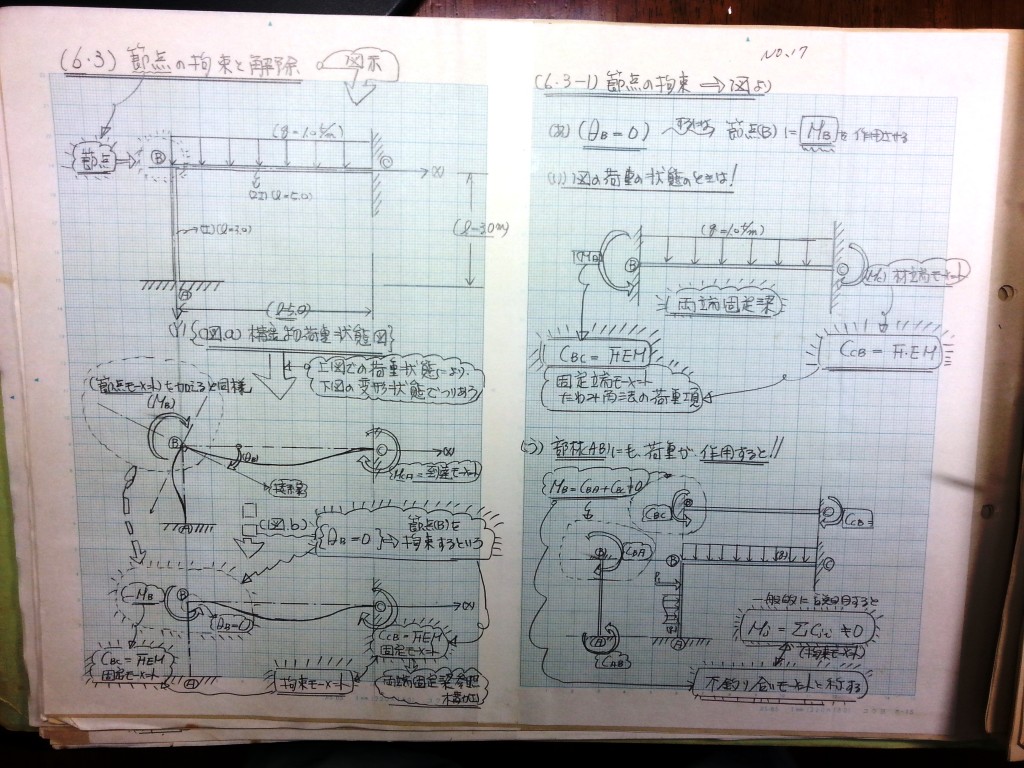 (6.3) 節点の拘束と解除
図示
(q=1.0t/m)
節点
B
C
(2I)(l=5.0)
(I)(l=3.0)
(l=3.0m)
A
(l=5.0)
{(図.a) 構造物荷重状態図}
上図での荷重状態により、
下図の変形状態でつりあう
(節点モーメント)を加えると同様
(MB)
B
(θB)
C
A
(図.b)
節点(B)を
{θB=0}⇒拘束するという
-MB
B
θB=0
C
CBC=F.EM
固定モーメント
CCB=F.EM
固定モーメント
A
拘束モーメント
NO.17
(6.3-1) 節点の拘束 ⇒ 図より
(θB=0) 節点(B)に MBを作用させる
図の荷重の状態のときは!
(q=1.0t/m)
(MB)
B
C
材端モーメント
両端固定梁
CBC=F.EM
CCB=F.EM
固定端モーメント
たわみ角法の荷重項
部材(AB)にも、荷重が、作用すると!!
MB=CBA+CBC≠0
CBC
B
C
CCB=
B
CBA
B
C
P
A
CAB
A
一般的に説明すると
Mi=ΣCij≠0
(拘束モーメント)
不釣り合いモーメントと称する